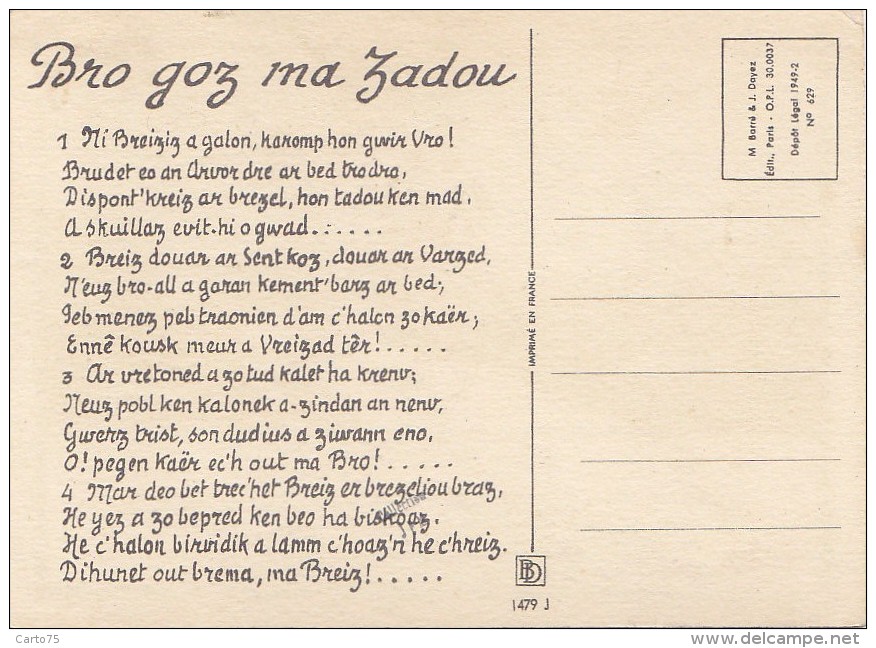 Bro goz ma Zadou
1 Ni Breiziz a galon, karomp hon gwir Vro!
Brudet eo an Arvor dre ar bed tro dro,
Dispont 'kreiz ar brezel, hon tadou ken mad,
A skuillaz evit-hi o gwad......
2 Breiz douar ar Sent koz, douar ar Varzed,
N'euz bro-all a garan kement 'barz ar bed;
Peb menez peb traonien d'am c'halon zo kaër;
Ennê kousk meur a Vreizad têr!.....
3 Ar vretoned a zo tud kalet ha krenv;
Neuz pobl ken kalonek a-zindan an nenv,
Gwerz trist, son dudius a ziwann eno,
O! pegen kaër ec'h out ma Bro!.....
4 Mar deo bet trec'het Breiz er brezeliou braz,
He yez a zo bepred ken beo ha biskoaz,
He c'halon birvidik a lamm c'hoaz 'n he c'hreiz.
Dihunet out brema, ma Breiz!.....
IMPRIMÉ EN FRANCE
M Barré & J. Dayez
Édit., Paris - O.P.L. 30.0037
Dépôt Légal 1949-2
N° 629
BD
1479 J
Carto75
http://www.delcampe.net